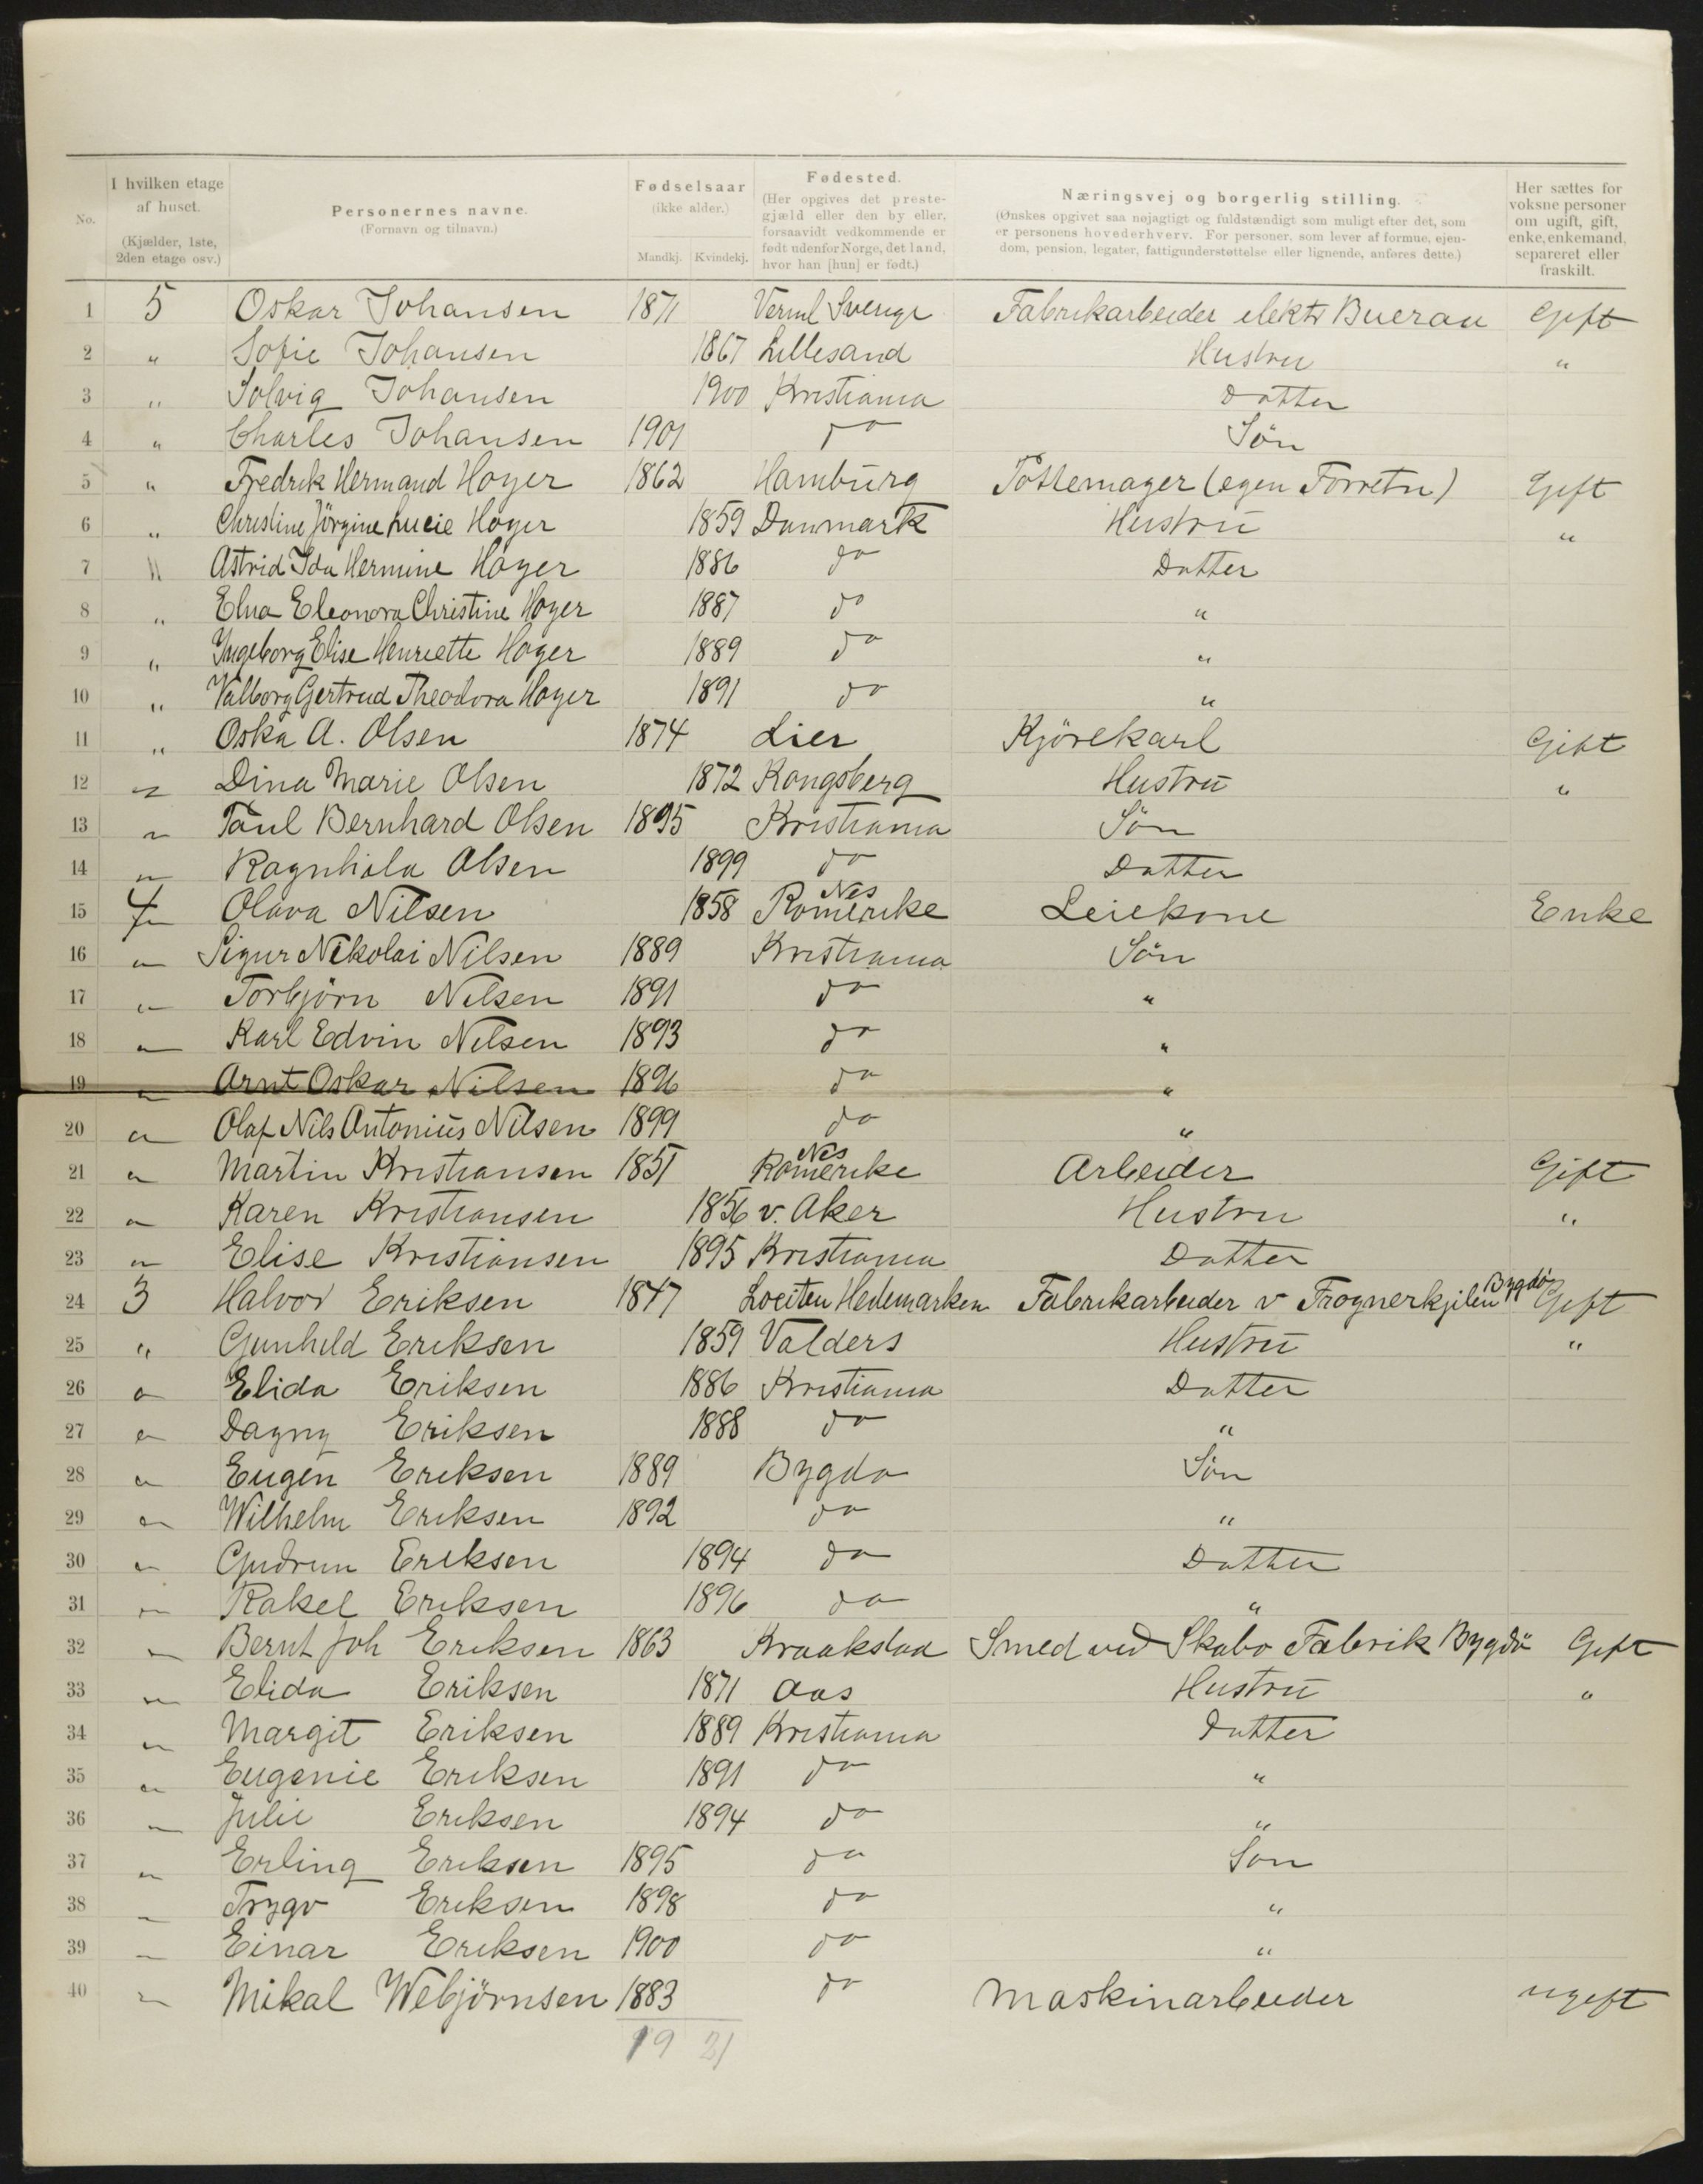 No.
I hvilken etage af huset. (Kjælder, 1ste, 2den etage osv.)
Personernes navne. (Fornavn og tilnavn.)
Fødselsaar (ikke alder.) Mandkj. Kvindekj.
Fødested. (Her opgives det prestegjæld eller den by eller, forsaavidt vedkommende er født udenfor Norge, det land, hvor han [hun] er født.)
Næringsvej og borgerlig stilling. (Ønskes opgivet saa nøjagtigt og fuldstændigt som muligt efter det, som er personens hovederhverv. For personer, som lever af formue, ejendom, pension, legater, fattigunderstøttelse eller lignende, anføres dette.)
Her sættes for voksne personer om ugift, gift, enke, enkemand, separeret eller fraskilt.
1 5 Oskar Johansen 1871 Verml Sverige Fabrikarbeider elektr Buerau Gift
2 " Sofie Johansen 1867 Lillesand Hustru "
3 " Solvig Johansen 1900 Kristiania Datter
4 " Charles Johansen 1901 do Sön
5 " Fredrik Hermand Hoyer 1862 Hamburg Pottemager (egen Forretn) Gift
6 " Christine Jörgine Lucie Hoyer 1859 Danmark Hustru "
7 " Astrid Ida Hermine Hoyer 1886 do Datter
8 " Elna Eleonora Christine Hoyer 1887 do "
9 " Yngeborg Elise Henriette Hoyer 1889 do "
10 " Valborg Gertrud Theodora Hoyer 1891 do "
11 " Oska A. Olsen 1874 Lier Kjörekarl Gift
12 " Dina Marie Olsen 1872 Kongsberg Hustru "
13 " Paul Bernhard Olsen 1895 Kristiania Sön
14 " Ragnhila Olsen 1899 do Datter
15 4 Olava Nilsen 1858 Nes Romerike Leiekone Enke
16 " Sigur Nikolai Nilsen 1889 Kristiania Sön
17 " Torbjörn Nilsen 1891 do "
18 " Karl Edvin Nilsen 1893 do "
19 " Arnt Oskar Nilsen 1896 do "
20 " Olaf Nils Antonius Nilsen 1899 do "
21 " Martin Kristiansen 1851 Nes Romerike Arbeider Gift
22 " Karen Kristiansen 1856 v. Aker Hustru "
23 " Elise Kristiansen 1895 Kristiania Datter
24 3 Halvor Eriksen 1847 Loeiten Hedemarken Fabrikarbeider v Frognerkjilen Bygdö Gift
25 " Gunhild Eriksen 1859 Valders Hustru "
26 " Elida Eriksen 1886 Kristiania Datter
27 " Dagny Eriksen 1888 do "
28 " Eugen Eriksen 1889 Bygdo Sön
29 " Wilhelm Eriksen 1892 do "
30 " Gudrun Eriksen 1894 do Datter
31 " Rakel Eriksen 1896 do "
32 " Bernt Joh Eriksen 1863 Kraakstad Smed ved Skabo Fabrik Bygdö Gift
33 " Elida Eriksen 1871 Aas Hustru "
34 " Margit Eriksen 1889 Kristiania Datter
35 " Eugenie Eriksen 1891 do "
36 " Julie Eriksen 1894 do "
37 " Erling Eriksen 1895 do Son
38 " Trygv Eriksen 1898 do "
39 " Einar Eriksen 1900 do "
40 " Mikal Webjörnsen 1883 do Maskinarbeider ugift
19 21